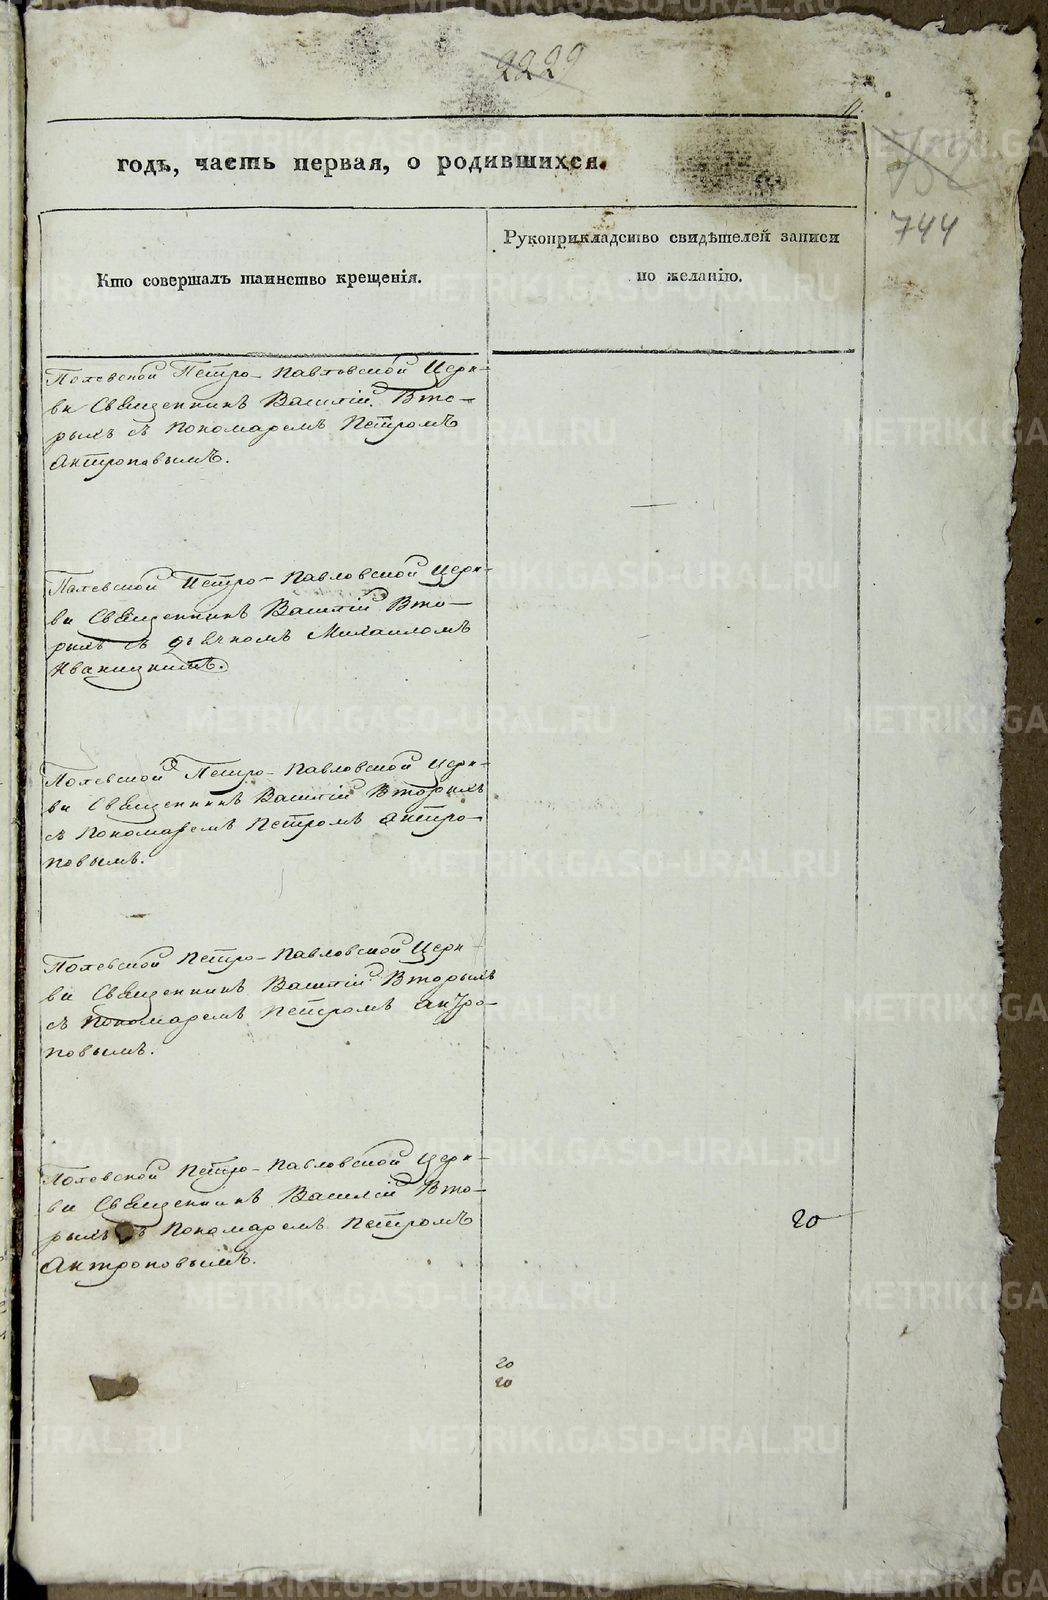 2229
11.
годъ, часть первая, о родившихся.
744
Кто совершалъ таинство крещенія.
Рукоприкладство свидѣтелей записи
по желанію.
Полевской Петро-Павловской Церк-
ви Священникъ Василій Вто-
рыхъ съ Пономаремъ Петромъ
Антроповымъ.
Полевской Петро-Павловской Церк-
ви Священникъ Василій Вто-
рыхъ съ дьячкомъ Михаиломъ
Иваницкимъ.
Полевской Петро-Павловской Церк-
ви Священникъ Василій Вторыхъ
съ Пономаремъ Петромъ Антро-
повымъ.
Полевской Петро-Павловской Церк-
ви Священникъ Василій Вторыхъ
съ Пономаремъ Петромъ Антро-
повымъ.
Полевской Петро-Павловской Церк-
ви Священникъ Василій Вто-
рыхъ съ Пономаремъ Петромъ
Антроповымъ.
20
20
20
METRIKI.GASO-URAL.RU